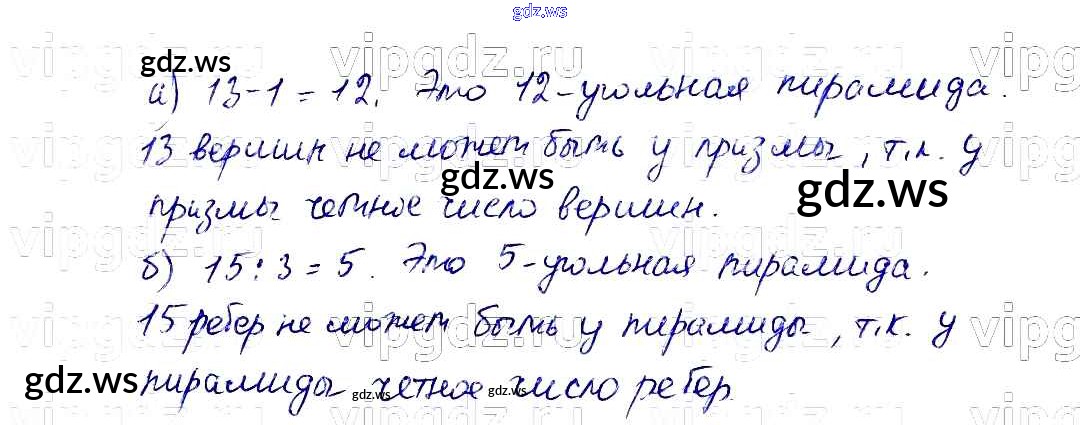 gdz.ws
vipgdz.ru vipgdz.ru vipgdz.ru vipg
gdz.ws
а) 13-1=12. Это 12-угольная пирамида.
13 вершин не может быть у призмы, т.к. у
gdz.ws gdz.ws
призмы четное число вершин.
б) 15:3=5. Это 5-угольная пирамида.
15 ребер не может быть у пирамиды, т.к. у
gdz.ws пирамиды четное число ребер.
gdz.ws gdz.ws